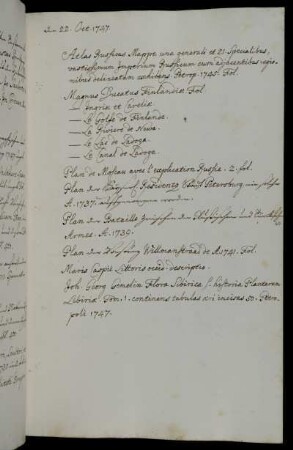 22. Oct 1747.
Atlas Russicus Mappa una generali et 21. Specialibus,
vastissimum Imperium Russicum cum adjacentibus regio-
nibus delineatum exhibens Petrop. 1745. Fol.
Magnus Ducatus Finlandiæ Fol.
— Ingriæ et Careliæ
— Le Golfe de Finlande.
— La Riviere de Neva.
— Le Lac de Ladoga.
— Le Canal de Ladoga.
Plan de Moskau avec l'explication Russe. 2. fol.
Plan der Residenz Stadt St. Petersburg
A. 1737. aufgenommen worden.
Plan der Bataille zwischen den Russischen und
Armee. A. 1739.
Plan der Vestung Willmanstrand de A. 1741. Fol.
Maris Caspii Littoris descriptio.
Joh. Georg. Gmelin Flora Sibirica s. historia Plantarum
Sibiriæ Tom. 1. continens tabulas æri incisas 50. Petro-
poli 1747.